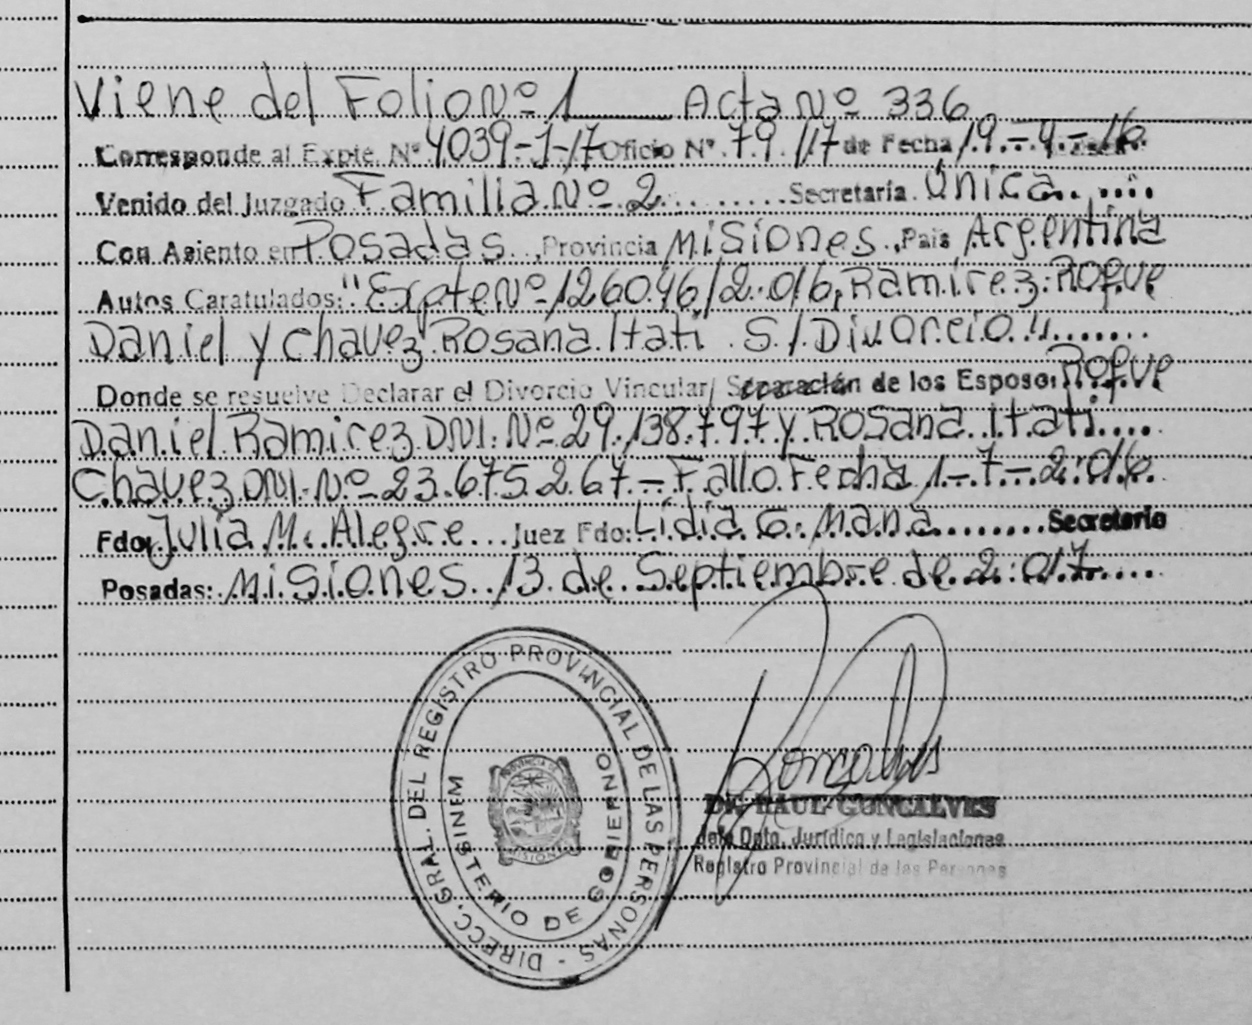 Viene del Folio Nº 1 Acta Nº 336
Corresponde al Expte. Nº 4039-J-17 Oficio Nº 79/17 de Fecha 19-4-16
Venido del Juzgado Familia Nº 2 Secretaría Única
Con Asiento en Posadas, Provincia Misiones, País Argentina
Autos Caratulados: "Expte Nº 126046/2.016, Ramirez Roque
Daniel y Chavez Rosana Itati S/Divorcio"
Donde se resuelve Declarar el Divorcio Vincular/ Separación de los Esposos Roque
Daniel Ramirez DNI. Nº 29.138.797 y Rosana Itati
Chavez DNI. Nº 23.675.267 - Fallo Fecha 1-7-2.016
Fdo. Julia M. Alegre Juez Fdo: Lidia G. Mana Secretario
Posadas: Misiones 13 de Septiembre de 2.017
DIRECC. GRAL. DEL REGISTRO PROVINCIAL DE LAS PERSONAS -
MINISTERIO DE GOBIERNO
PROVINCIA DE
MISIONES
Goncalves
Dr. RAUL GONCALVES
Jefe Dpto. Jurídico y Legislaciones
Registro Provincial de las Personas